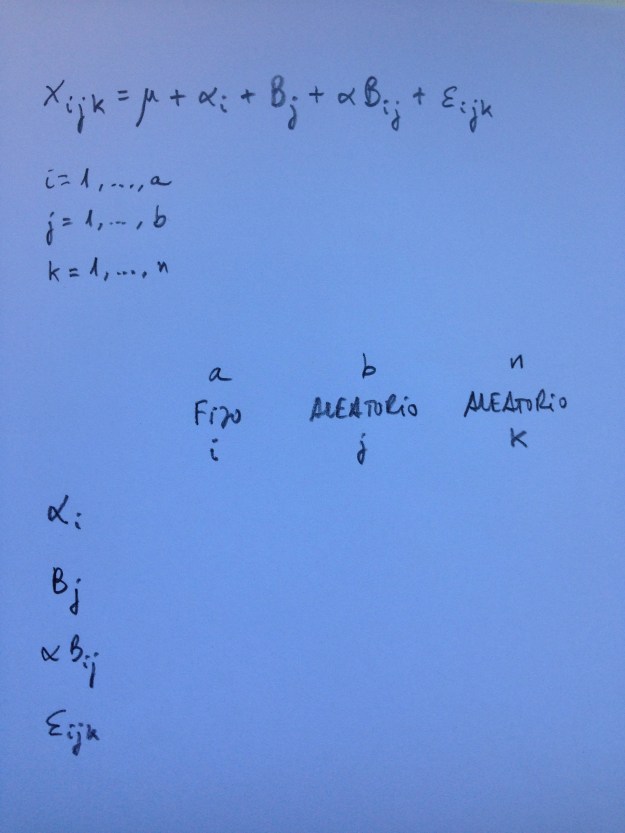 Xijk = μ + αi + Bj + αBij + εijk
i = 1, ..., a
j = 1, ..., b
k = 1, ..., n
a b n
FIJO ALEATORIO ALEATORIO
i j k
αi
Bj
αBij
εijk